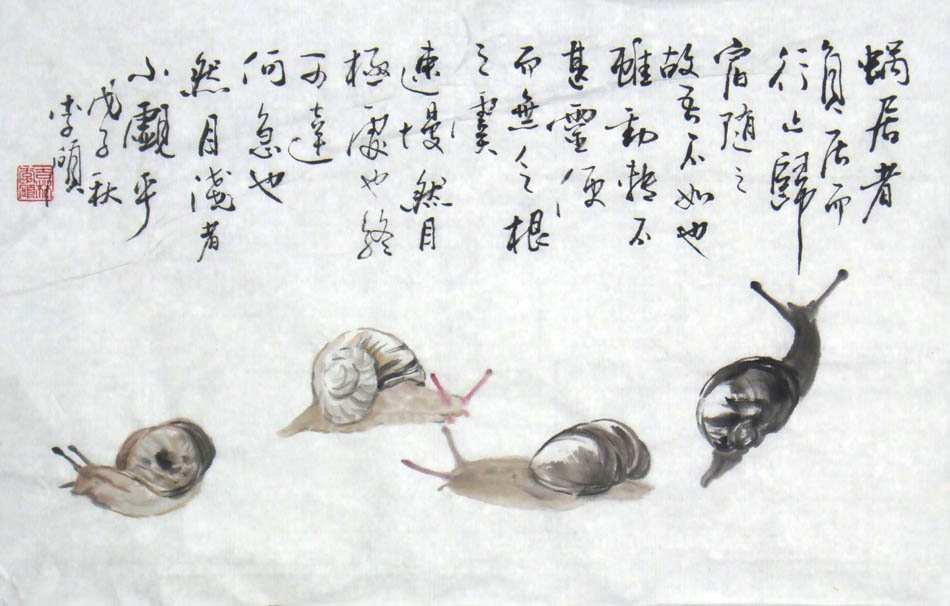 蝸居者
負居而
行止歸
宿随之
故吾不如也
雖動轉不
甚靈便
而無根
之
速慢然目
極處也終
可達
何急也
然目淺者
小覷乎
戊子秋
李碩